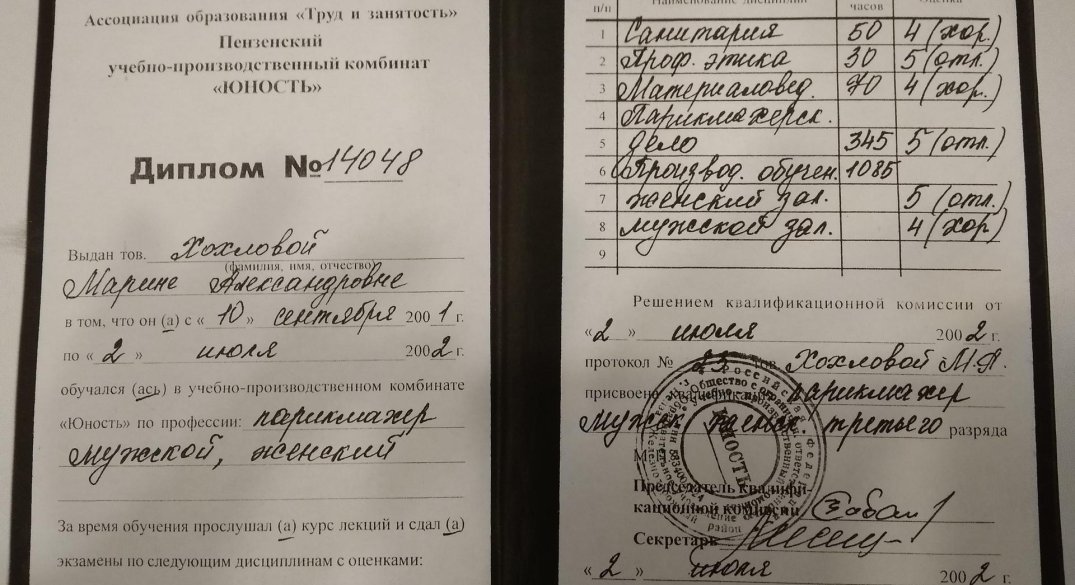 Ассоциация образования «Труд и занятость»
Пензенский
учебно-производственный комбинат
«ЮНОСТЬ»
Диплом № 14048
Выдан тов. Хохловой
(фамилия, имя, отчество)
Марине Александровне
в том, что он (а) с « 10 » сентября 200 1 г.
по « 2 » июля 200 2 г.
обучался (ась) в учебно-производственном комбинате
«Юность» по профессии: парикмахер
мужской, женский
За время обучения прослушал (а) курс лекций и сдал (а)
экзамены по следующим дисциплинам с оценками:
п/п Наименование дисциплин часов Оценка
1 Санитария 50 4 (хор.)
2 Проф. этика 30 5 (отл.)
3 Материаловед. 70 4 (хор.)
4 Парикмахерск.
5 дело 345 5 (отл.)
6 Производ. обучен. 1085
7 женский зал. 5 (отл.)
8 мужской зал. 4 (хор)
9
Решением квалификационной комиссии от
« 2 » июля 200 2 г.
протокол № тов. Хохловой М.А.
присвоена квалификация парикмахер
третьего разряда
М.П.
Председатель квалифи-
кационной комиссии
Секретарь
« 2 » июля 200 2 г.
ЮНОСТЬ